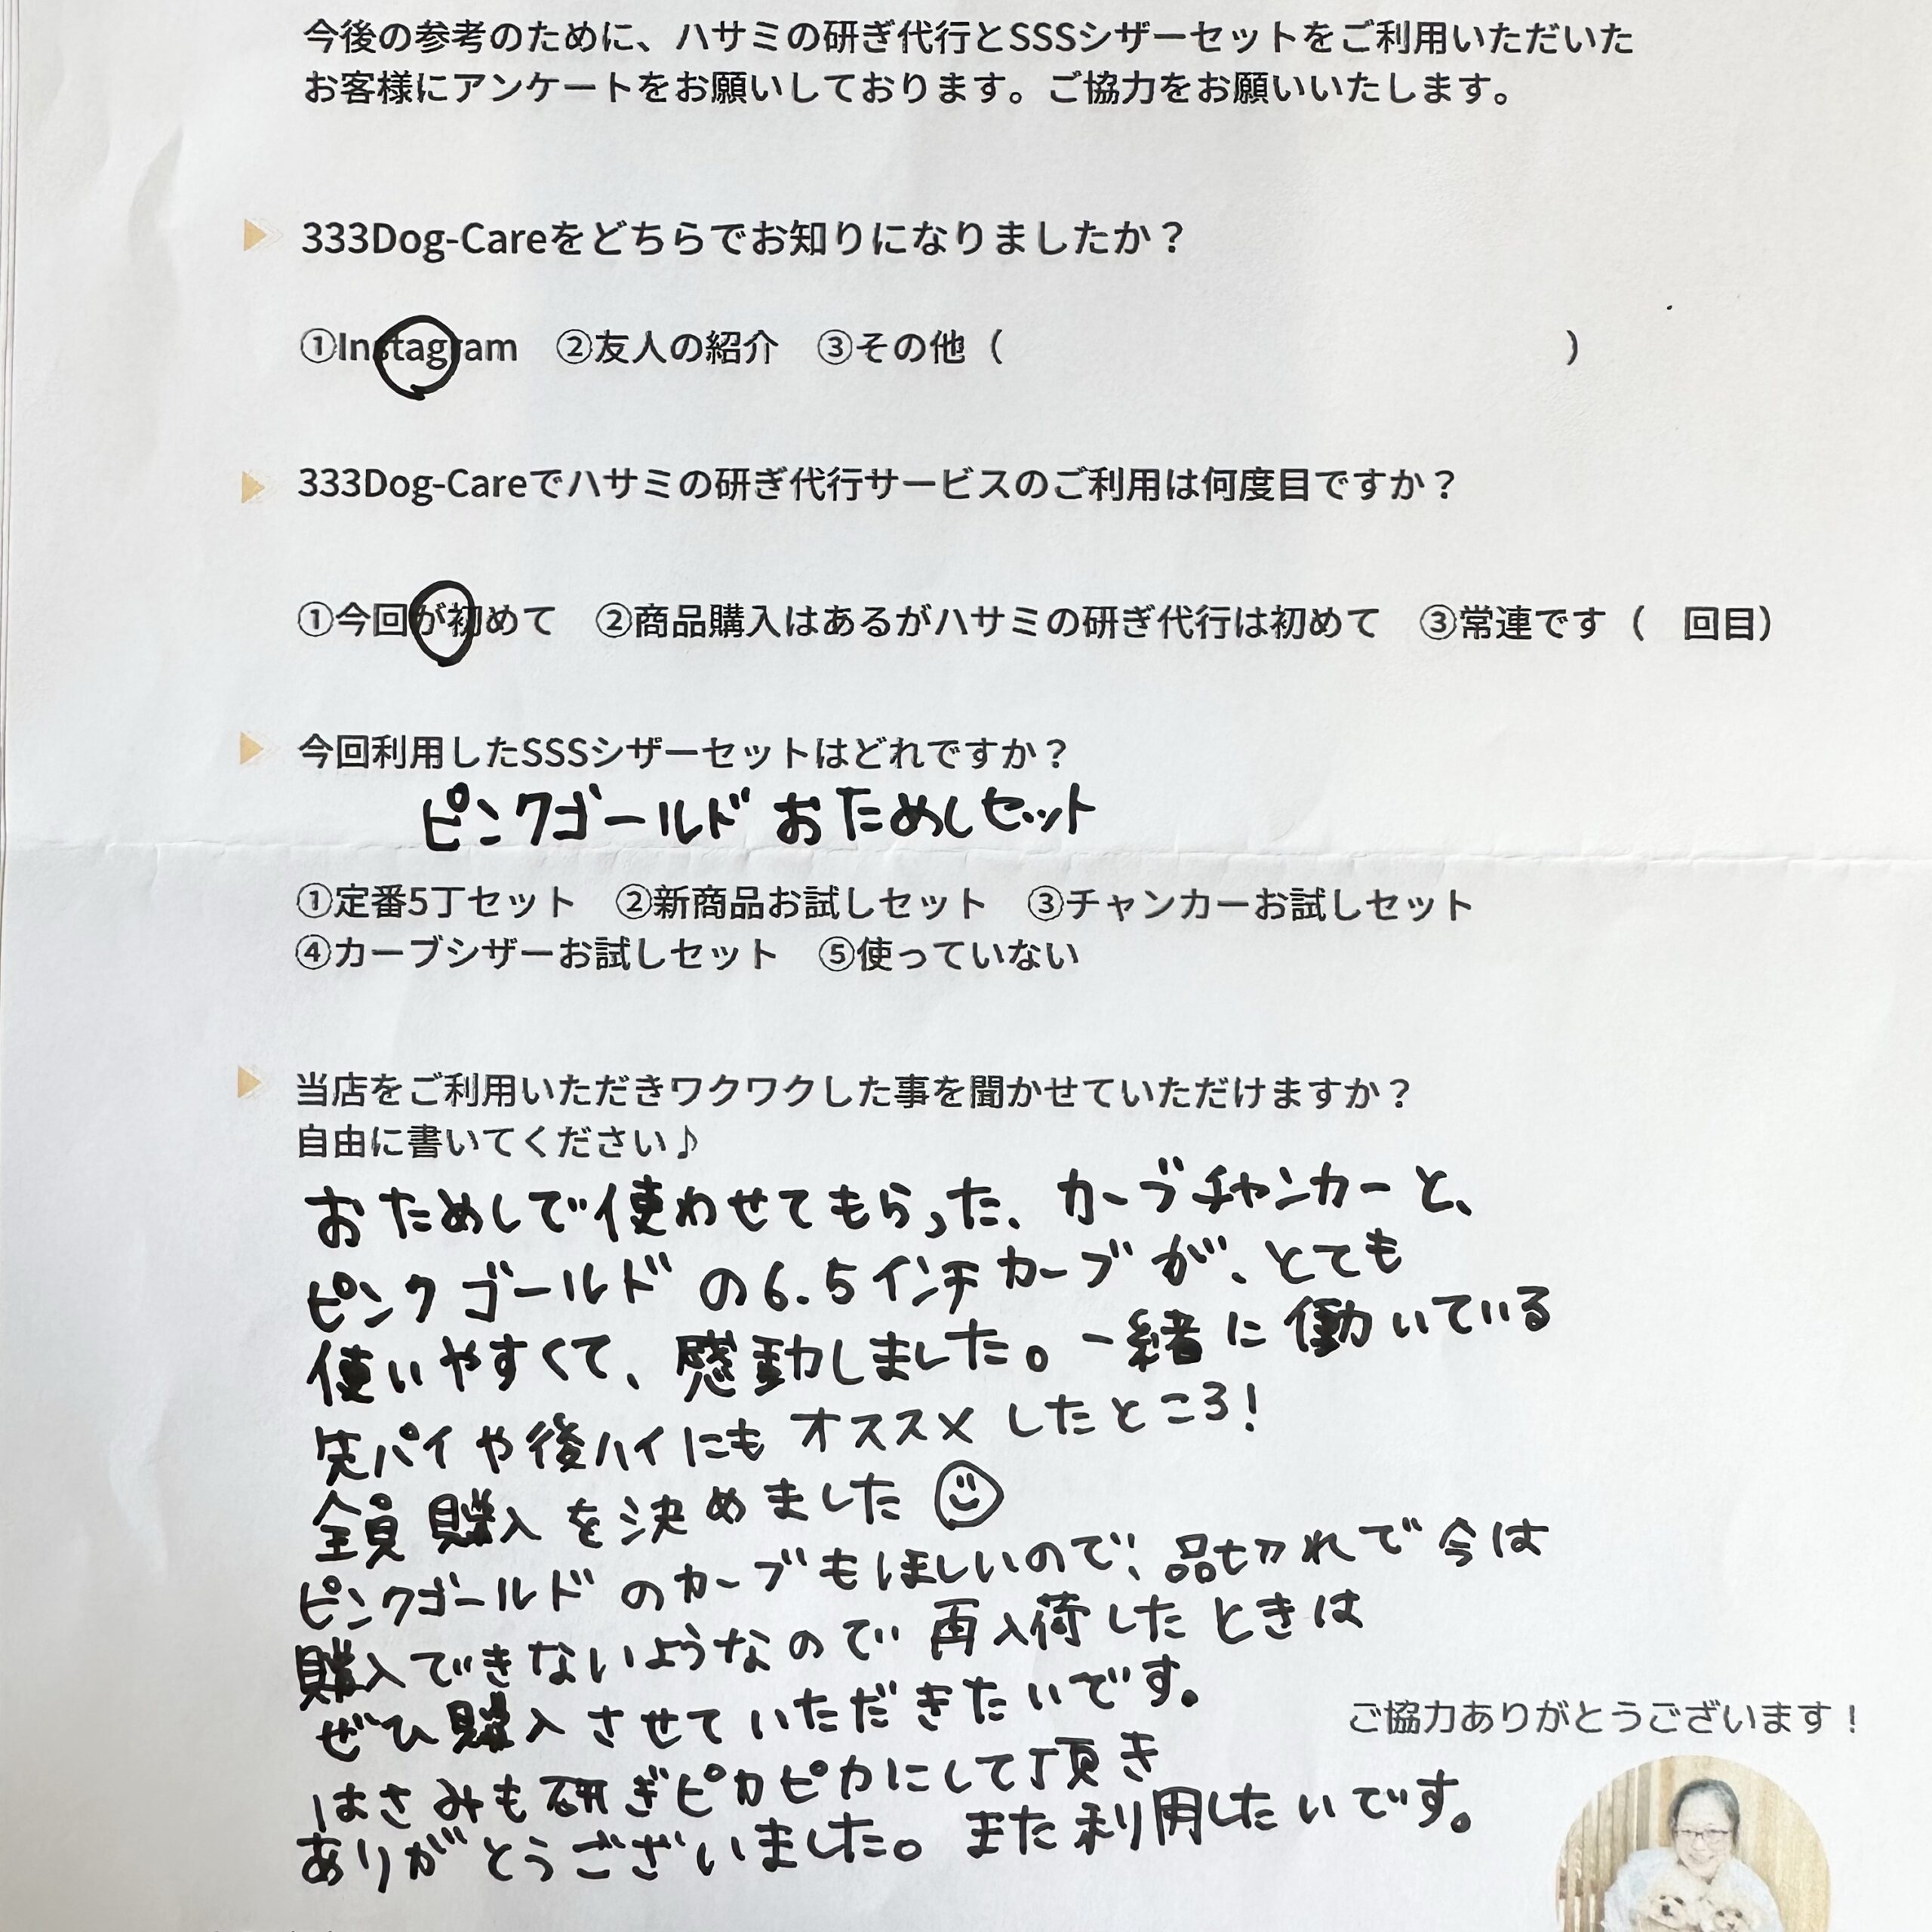 今後の参考のために、ハサミの研ぎ代行とSSSシザーセットをご利用いただいた
お客様にアンケートをお願いしております。ご協力をお願いいたします。
333Dog-Careをどちらでお知りになりましたか？
①Instagram　②友人の紹介　③その他（　　　　　　　　　　　　　　　）
333Dog-Careでハサミの研ぎ代行サービスのご利用は何度目ですか？
①今回が初めて　②商品購入はあるがハサミの研ぎ代行は初めて　③常連です（　回目）
今回利用したSSSシザーセットはどれですか？
ピンクゴールドおためしセット
①定番5丁セット　②新商品お試しセット　③チャンカーお試しセット
④カーブシザーお試しセット　⑤使っていない
当店をご利用いただきワクワクした事を聞かせていただけますか？
自由に書いてください♪
おためしで使わせてもらった、カーブチャンカーと、
ピンクゴールドの6.5インチカーブが、とても
使いやすくて、感動しました。一緒に働いている
先パイや後ハイにもオススメしたところ！
全員購入を決めました
ピンクゴールドのカーブもほしいので、品切れで今は
購入できないようなので再入荷したときは
ぜひ購入させていただきたいです。
ご協力ありがとうございます！
はさみも研ぎピカピカにして頂き
ありがとうございました。また利用したいです。